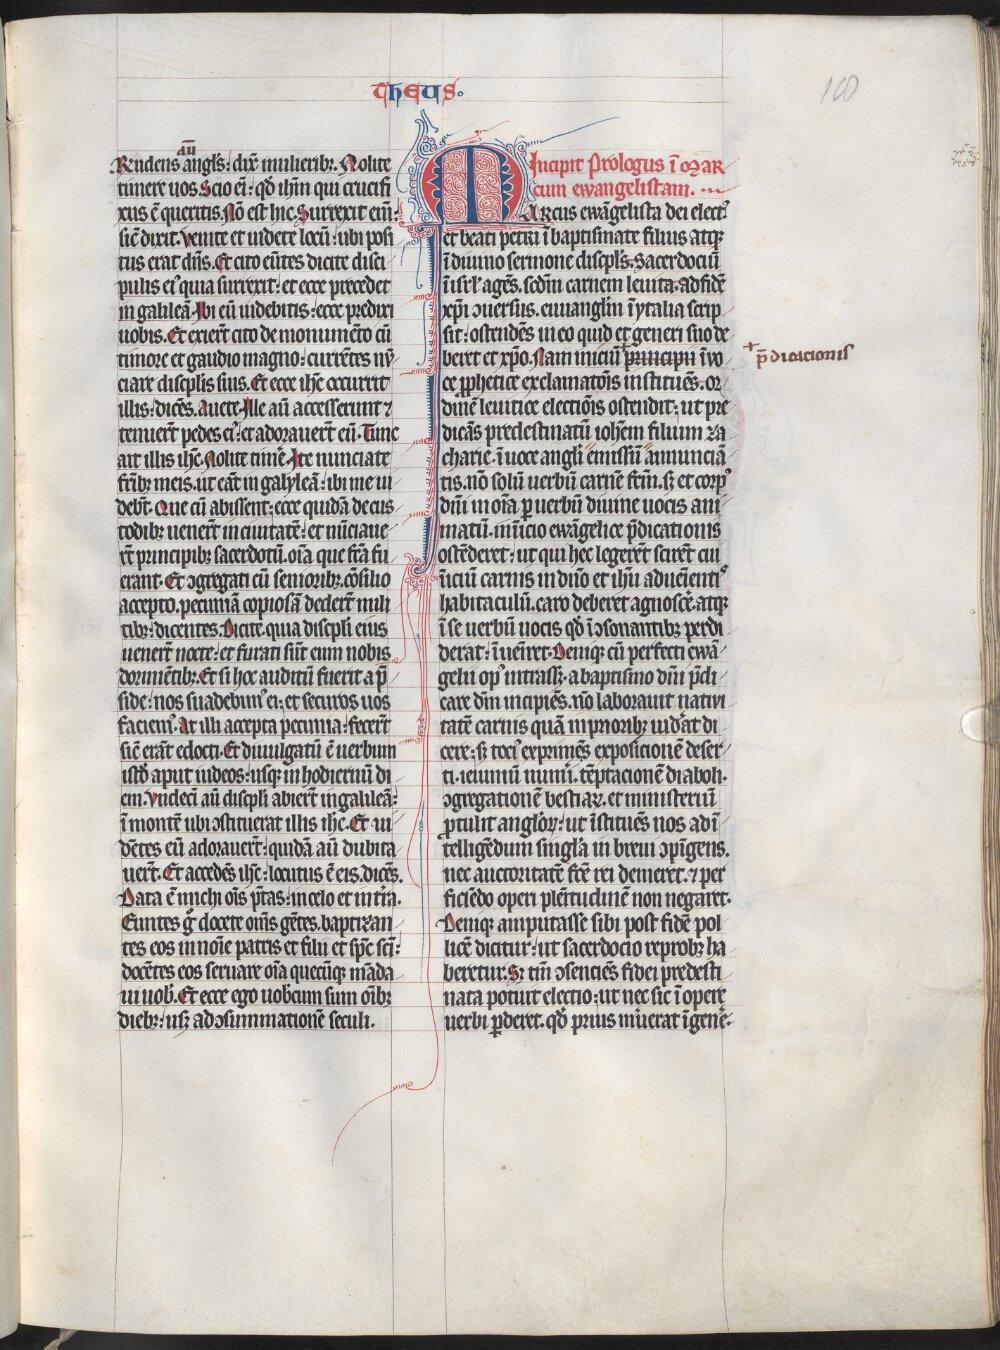 theus.
160
aū
Rndens angls: dix̄ mulierib⁊. Nolite
timere uos. Scio ei: qd ihm̄ qui crucifi
xus ē queritis. Nō est hic. Surrexit em̄:
sic̄ dixit. Venite et uidete locū: ubi posi
tus erat dn̄s. Et cito eūtes dicite disci
pulis ei' quia surrexit: et ecce precedet
in galileā. Ibi eū uidebitis: ecce predixi
uobis. Et exier̄t cito de monumēto cū
timore et gaudio magno: currētes nū
ciare discipl̄is suis. Et ecce ihc̄ occurrit
illis: dicēs. Auete. Ille aū accesserunt ⁊
tenuer̄t pedes ei': et adorauer̄t eū. Tunc
ait illis ihc̄. Nolite timē. Ite nunciate
fr̄ib⁊ meis. ut eāt in galyleā: ibi me ui
debt̄. Que cū abissent: ecce quidā de cus
todib⁊ uener̄t in ciuitatē: et nūciaue
rt̄ principib⁊ sacerdotū. oīa que fc̄a fu
erant. Et ↄgregati cū seniorib⁊. cōsilio
accepto. pecuniā copiosā deder̄t mili
tib⁊: dicentes. Dicite. quia discipl̄i eius
uener̄t nocte: et furati sūt eum nobis
dormiētib⁊. Et si hoc auditū fuerit a p̄
side: nos suadebim' ei: et securos uos
faciem'. At illi accepta pecunia: fecer̄t
sic̄ erāt edocti. Et diuulgatū ē uerbum
istd̄ aput iudeos: usq; in hodiernū di
em. Vndeci aū discipl̄i abier̄t in galileā:
ī montē ubi ↄstituerat illis ihc̄. Et ui
dētes eū adorauer̄t: quidā aū dubita
uer̄t. Et accedēs ihc̄: locutus ē eis. dicēs.
Data ē michi oīs p̄tas: in celo et in tr̄a.
Euntes g̊ docete om̄s gētes. baptizan
tes eos in noīe patris et filii et spc̄ sc̄i:
docētes eos seruare oīa quecūq; māda
ui uob̄. Et ecce ego uobcum sum oīb⁊
dieb⁊: us⁊ ad ↄsummationē seculi.
Incipit Prologus ī mar
cum ewangelistam.
MArcus ewāgelista dei elect'
et beati petri ī baptismate filius atq;
ī diuino sermone discipl̄s. Sacerdociū
ī isrl̄ agēs. scd̄m carnem leuita. ad fidē
xpī ↄuersus. euuangliū ī ytalia scrip
sit: ostendēs in eo quid et generi suo de
beret et xpo. Nam iniciū principii ī uo
ce prophetice exclamatōis instituēs. or
dinē leuitice electiōis ostendit: ut pre
dicās predestinatū iohēm filium za
charie. ī uoce angli emissū annunciā
tis. nō solū uerbū carnē fcm̄. s⁊ et corp'
dn̄i in oīa p uerbū diuine uocis ani
matū. inicio ewāgelice p̄dicationis
ostēderet: ut qui hec leger̄et sciret cui
iniciū carnis in dn̄o et ihū adueīenti'
habitaculū. caro deberet agnoscē. atq;
ī se uerbū uocis qd̄ ī ↄsonantib⁊ perdi
derat: ī uēiret. Deniq; cū perfecti ewā
gelii op' intrass⁊. a baptismo dn̄i p̄di
care dm̄ incipiēs. nō laborauit natiui
tatē carnis quā in priorib⁊ uid'at di
cere: s⁊ toci' exprimēs exposicionē deser
ti. ieiuniū numi. tēptacionē diaboli.
ↄgregationē bestiar̄. et ministeriū
ptulit anglor̄: ut īstituēs nos ad ī
telligēdum singl̄a in breui ↄpīgens.
nec auctoritatē fc̄e rei demeret. ⁊ per
ficiēdo operi plētitudinē non negaret.
Deniq; amputasse sibi post fidē pol
licē dicitur: ut sacerdocio reprob⁊ ha
beretur. S⁊ tm̄ ↄsenciēs fidei predesti
nata potuit electio: ut nec sic ī opere
uerbi pderet. qd̄ prius m̄uerat ī genē.
+ p̄dicacionis